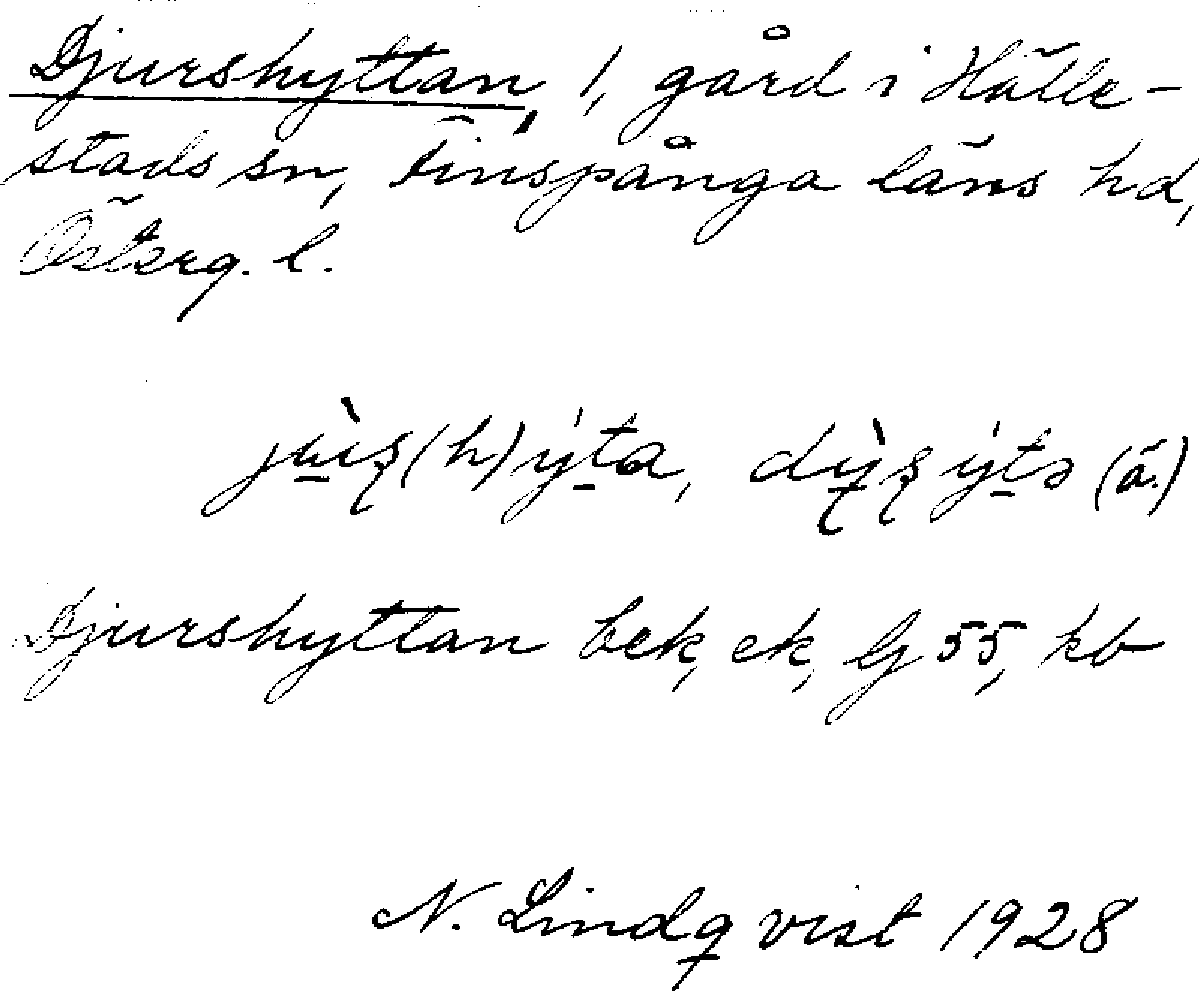 Djurshyttan, 1, gård i Hälle-
stads sn, Finspånga läns hd,
Österg. l.
(h)
(ä.)
Djurshyttan bek, ek, Gj 55, kb
N. Lindqvist 1928